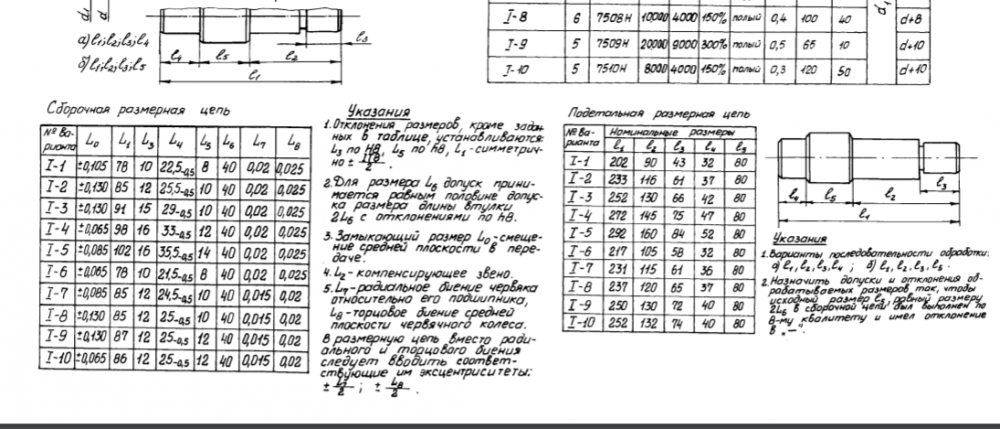 d₁ d
а) l₁; l₂; l₃; l₄
б) l₁; l₂; l₃; l₅
l₃
l₄ l₅ l₂
l₁
I-8 6 7508Н 10000 4000 150% полый 0,4 100 40 d+8
I-9 5 7509Н 20000 9000 300% полый 0,5 65 10 d+10
I-10 5 7510Н 8000 4000 150% полый 0,3 120 50 d+10
d₁
Сборочная размерная цепь
№ Ва-рианта L₀ L₁ L₃ L₄ L₅ L₆ L₇ L₈
I-1 ±0,105 78 10 22,5-0,5 8 40 0,02 0,025
I-2 ±0,130 85 12 25,5-0,5 10 40 0,02 0,025
I-3 ±0,130 91 15 29-0,5 10 40 0,02 0,025
I-4 ±0,065 98 16 33-0,5 12 40 0,02 0,025
I-5 ±0,085 102 16 35,5-0,5 14 40 0,02 0,025
I-6 ±0,065 78 10 21,5-0,5 8 40 0,02 0,025
I-7 ±0,085 85 12 24,5-0,5 10 40 0,015 0,02
I-8 ±0,130 85 12 25-0,5 10 40 0,015 0,02
I-9 ±0,130 87 12 25-0,5 12 40 0,015 0,02
I-10 ±0,065 86 12 25-0,5 12 40 0,015 0,02
Указания
1. Отклонения размеров, кроме задан-
ных в таблице, устанавливаются:
L₃ по h8, L₅ по h8, L₁ -симметрич-
но ±
2. Для размера L₆ допуск прини-
мается равным половине допус-
ка размера длины втулки
2L₆ с отклонениями по h8.
3. Замыкающий размер L₀-смеще-
ние средней плоскости в пере-
даче.
4. L₂ - компенсирующее звено.
5. L₇-радиальное биение червяка
относительно его подшипника,
L₈-торцовое биение средней
плоскости червячного колеса.
В размерную цепь вместо ради-
ального и торцового биения
следует вводить соответ-
ствующие им эксцентриситеты:
± L₇/2 ; ± L₈/2 .
Подетальная размерная цепь
№ Ва-рианта Номинальные размеры
l₁ l₂ l₃ l₄ l₅
I-1 202 90 43 32 80
I-2 233 116 61 37 80
I-3 252 130 66 42 80
I-4 272 145 75 47 80
I-5 292 160 84 52 80
I-6 217 105 58 32 80
I-7 231 115 61 36 80
I-8 237 120 65 37 80
I-9 250 130 72 40 80
I-10 252 132 74 40 80
l₃
l₄ l₅ l₂
l₁
Указания
1. Варианты последовательности обработки:
а) l₁, l₂, l₃, l₄ ; б) l₁, l₂, l₃, l₅ .
2. Назначить допуски и отклонения об-
рабатываемых размеров так, чтобы
исходный размер l₅, равный размеру
2L₆ в сборочной цепи был выполнен по
8-му квалитету и имел отклонение
в „—“.